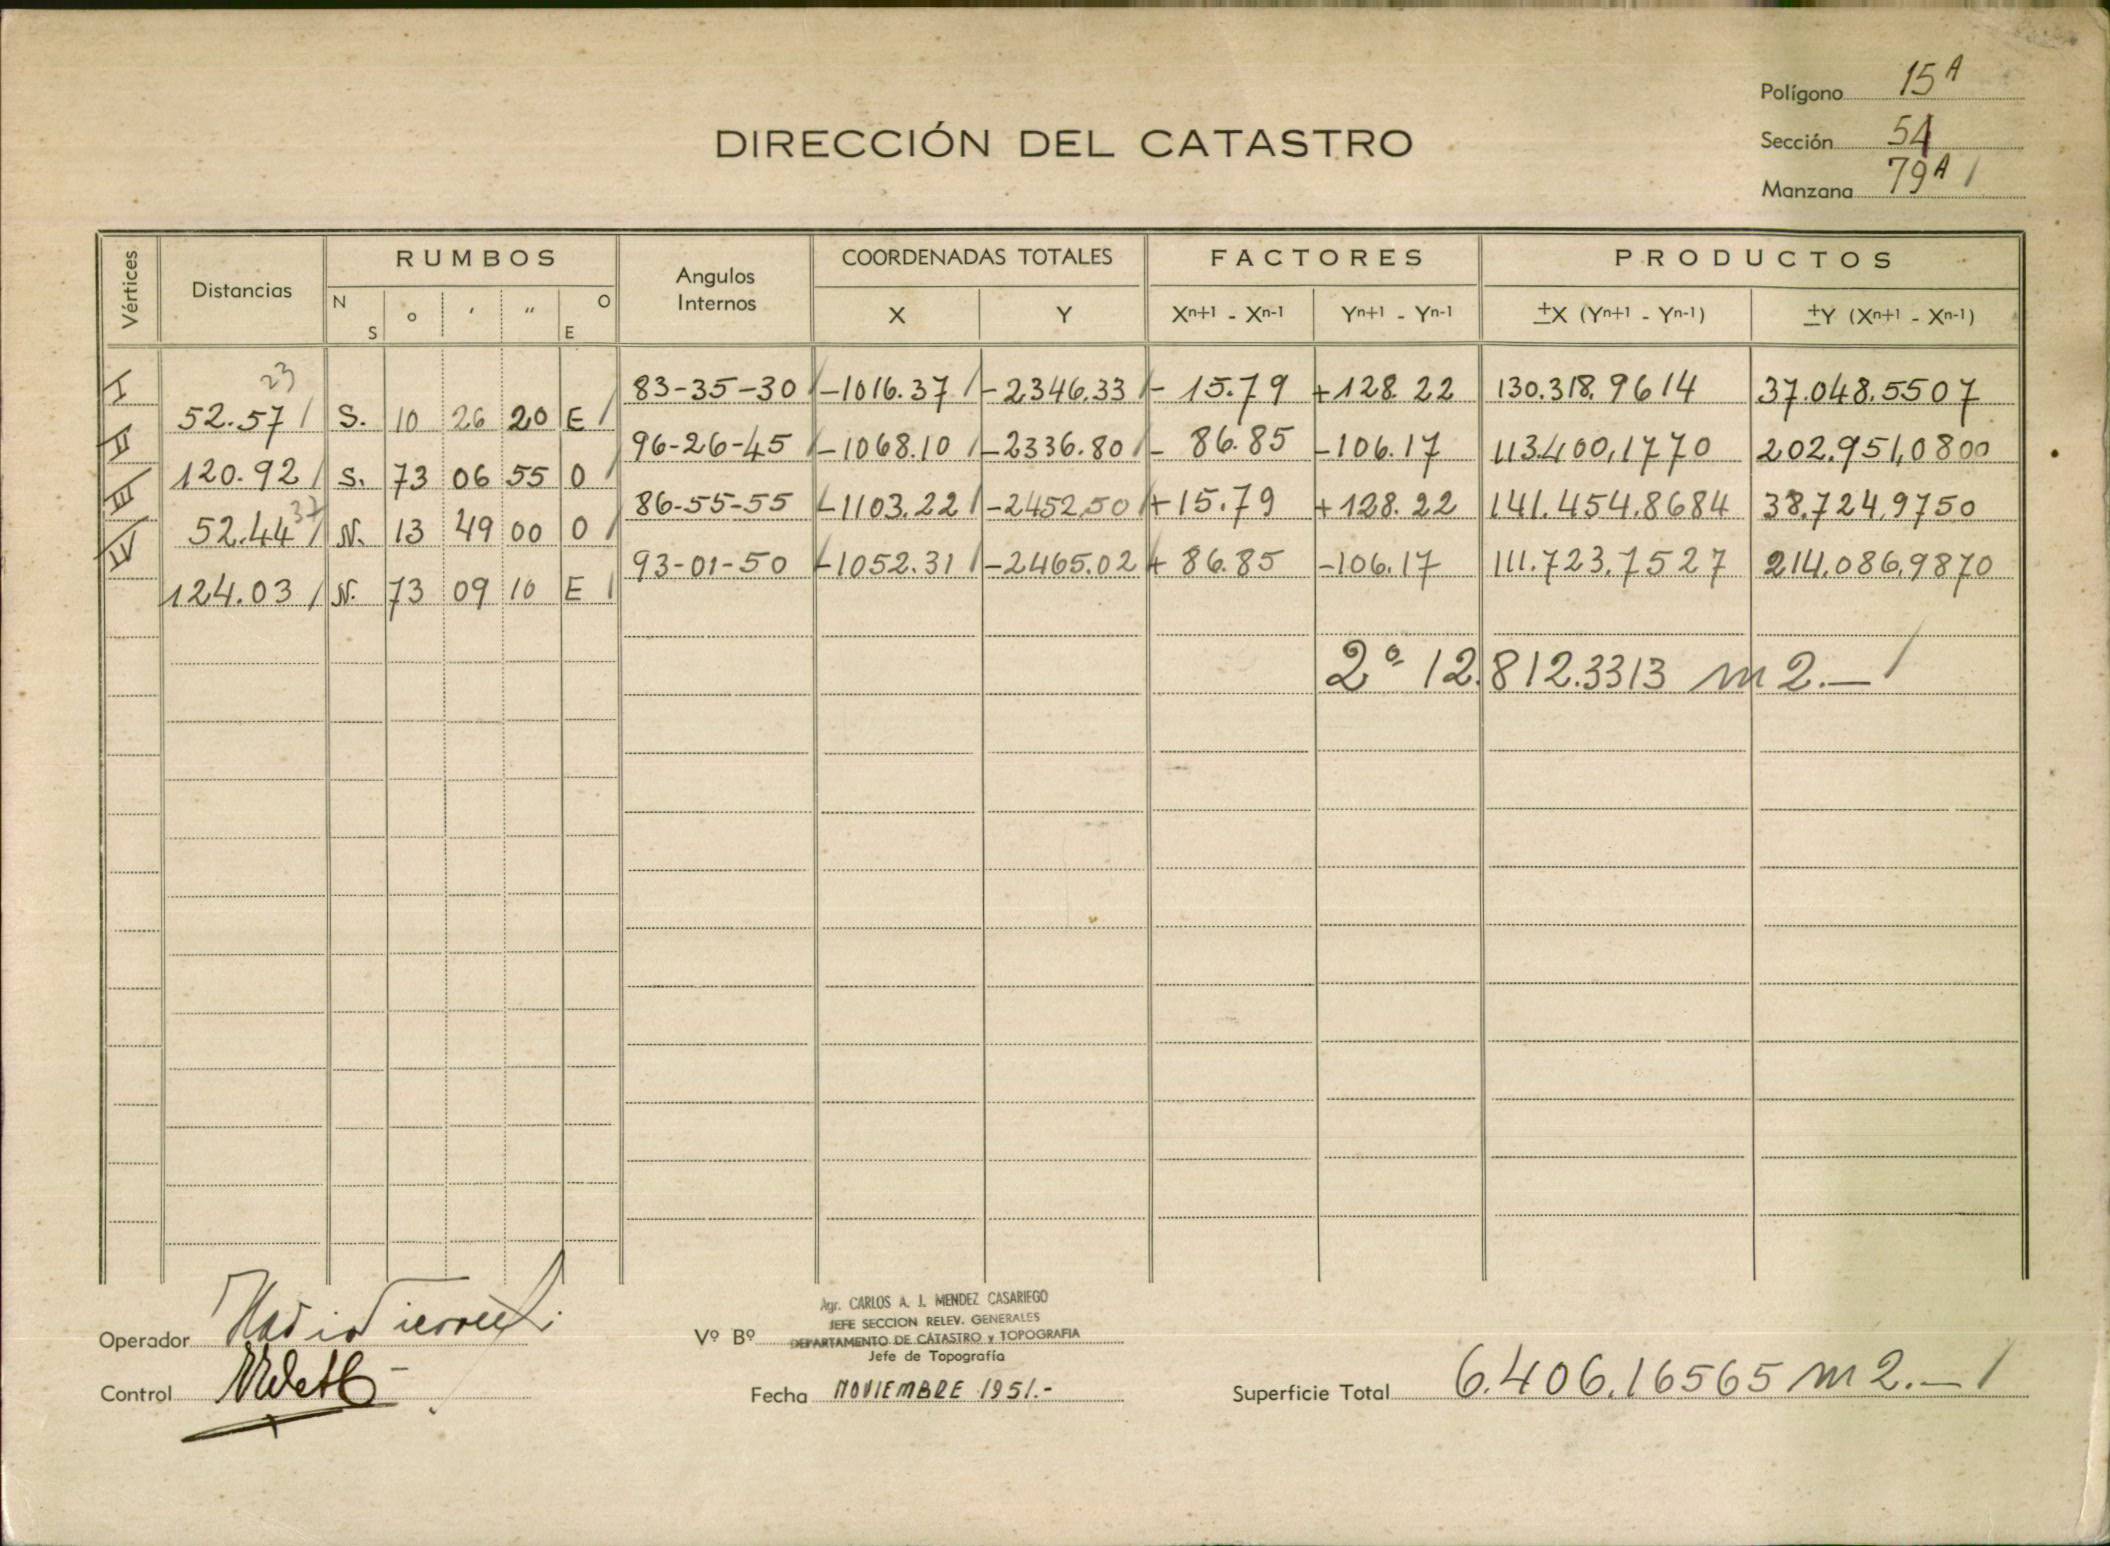 Polígono 15A
DIRECCIÓN DEL CATASTRO
Sección 54
Manzana 79A /
Vértices Distancias RUMBOS Angulos Internos COORDENADAS TOTALES FACTORES PRODUCTOS
N S ° ' " O E X Y Xn+1 - Xn-1 Yn+1 - Yn-1 ±X (Yn+1 - Yn-1) ±Y (Xn+1 - Xn-1)
23
I 83-35-30 / -1016.37 / -2346.33 / - 15.79 +128.22 130.318.9614 37.048.5507
52.57 / S. 10 26 20 E /
II 96-26-45 / -1068.10 / -2336.80 / - 86.85 -106.17 113.400,1770 202.951,0800
120.92 / S. 73 06 55 O /
III 86-55-55 -1103.22 / -2452,50 / +15.79 +128.22 141.454.8684 38.724,9750
37
52.44 / N. 13 49 00 O /
IV 93-01-50 -1052.31 / -2465.02 + 86.85 -106.17 111.723.7527 214.086,9870
124.03 / N. 73 09 10 E /
2º 12.812.3313 m2.— /
Operador
Vº Bº Agr. CARLOS A. J. MENDEZ CASARIEGO
JEFE SECCION RELEV. GENERALES
DEPARTAMENTO DE CATASTRO y TOPOGRAFIA
Jefe de Topografía
Control
Fecha NOVIEMBRE 1951.-
Superficie Total 6.406.16565 m2.— /